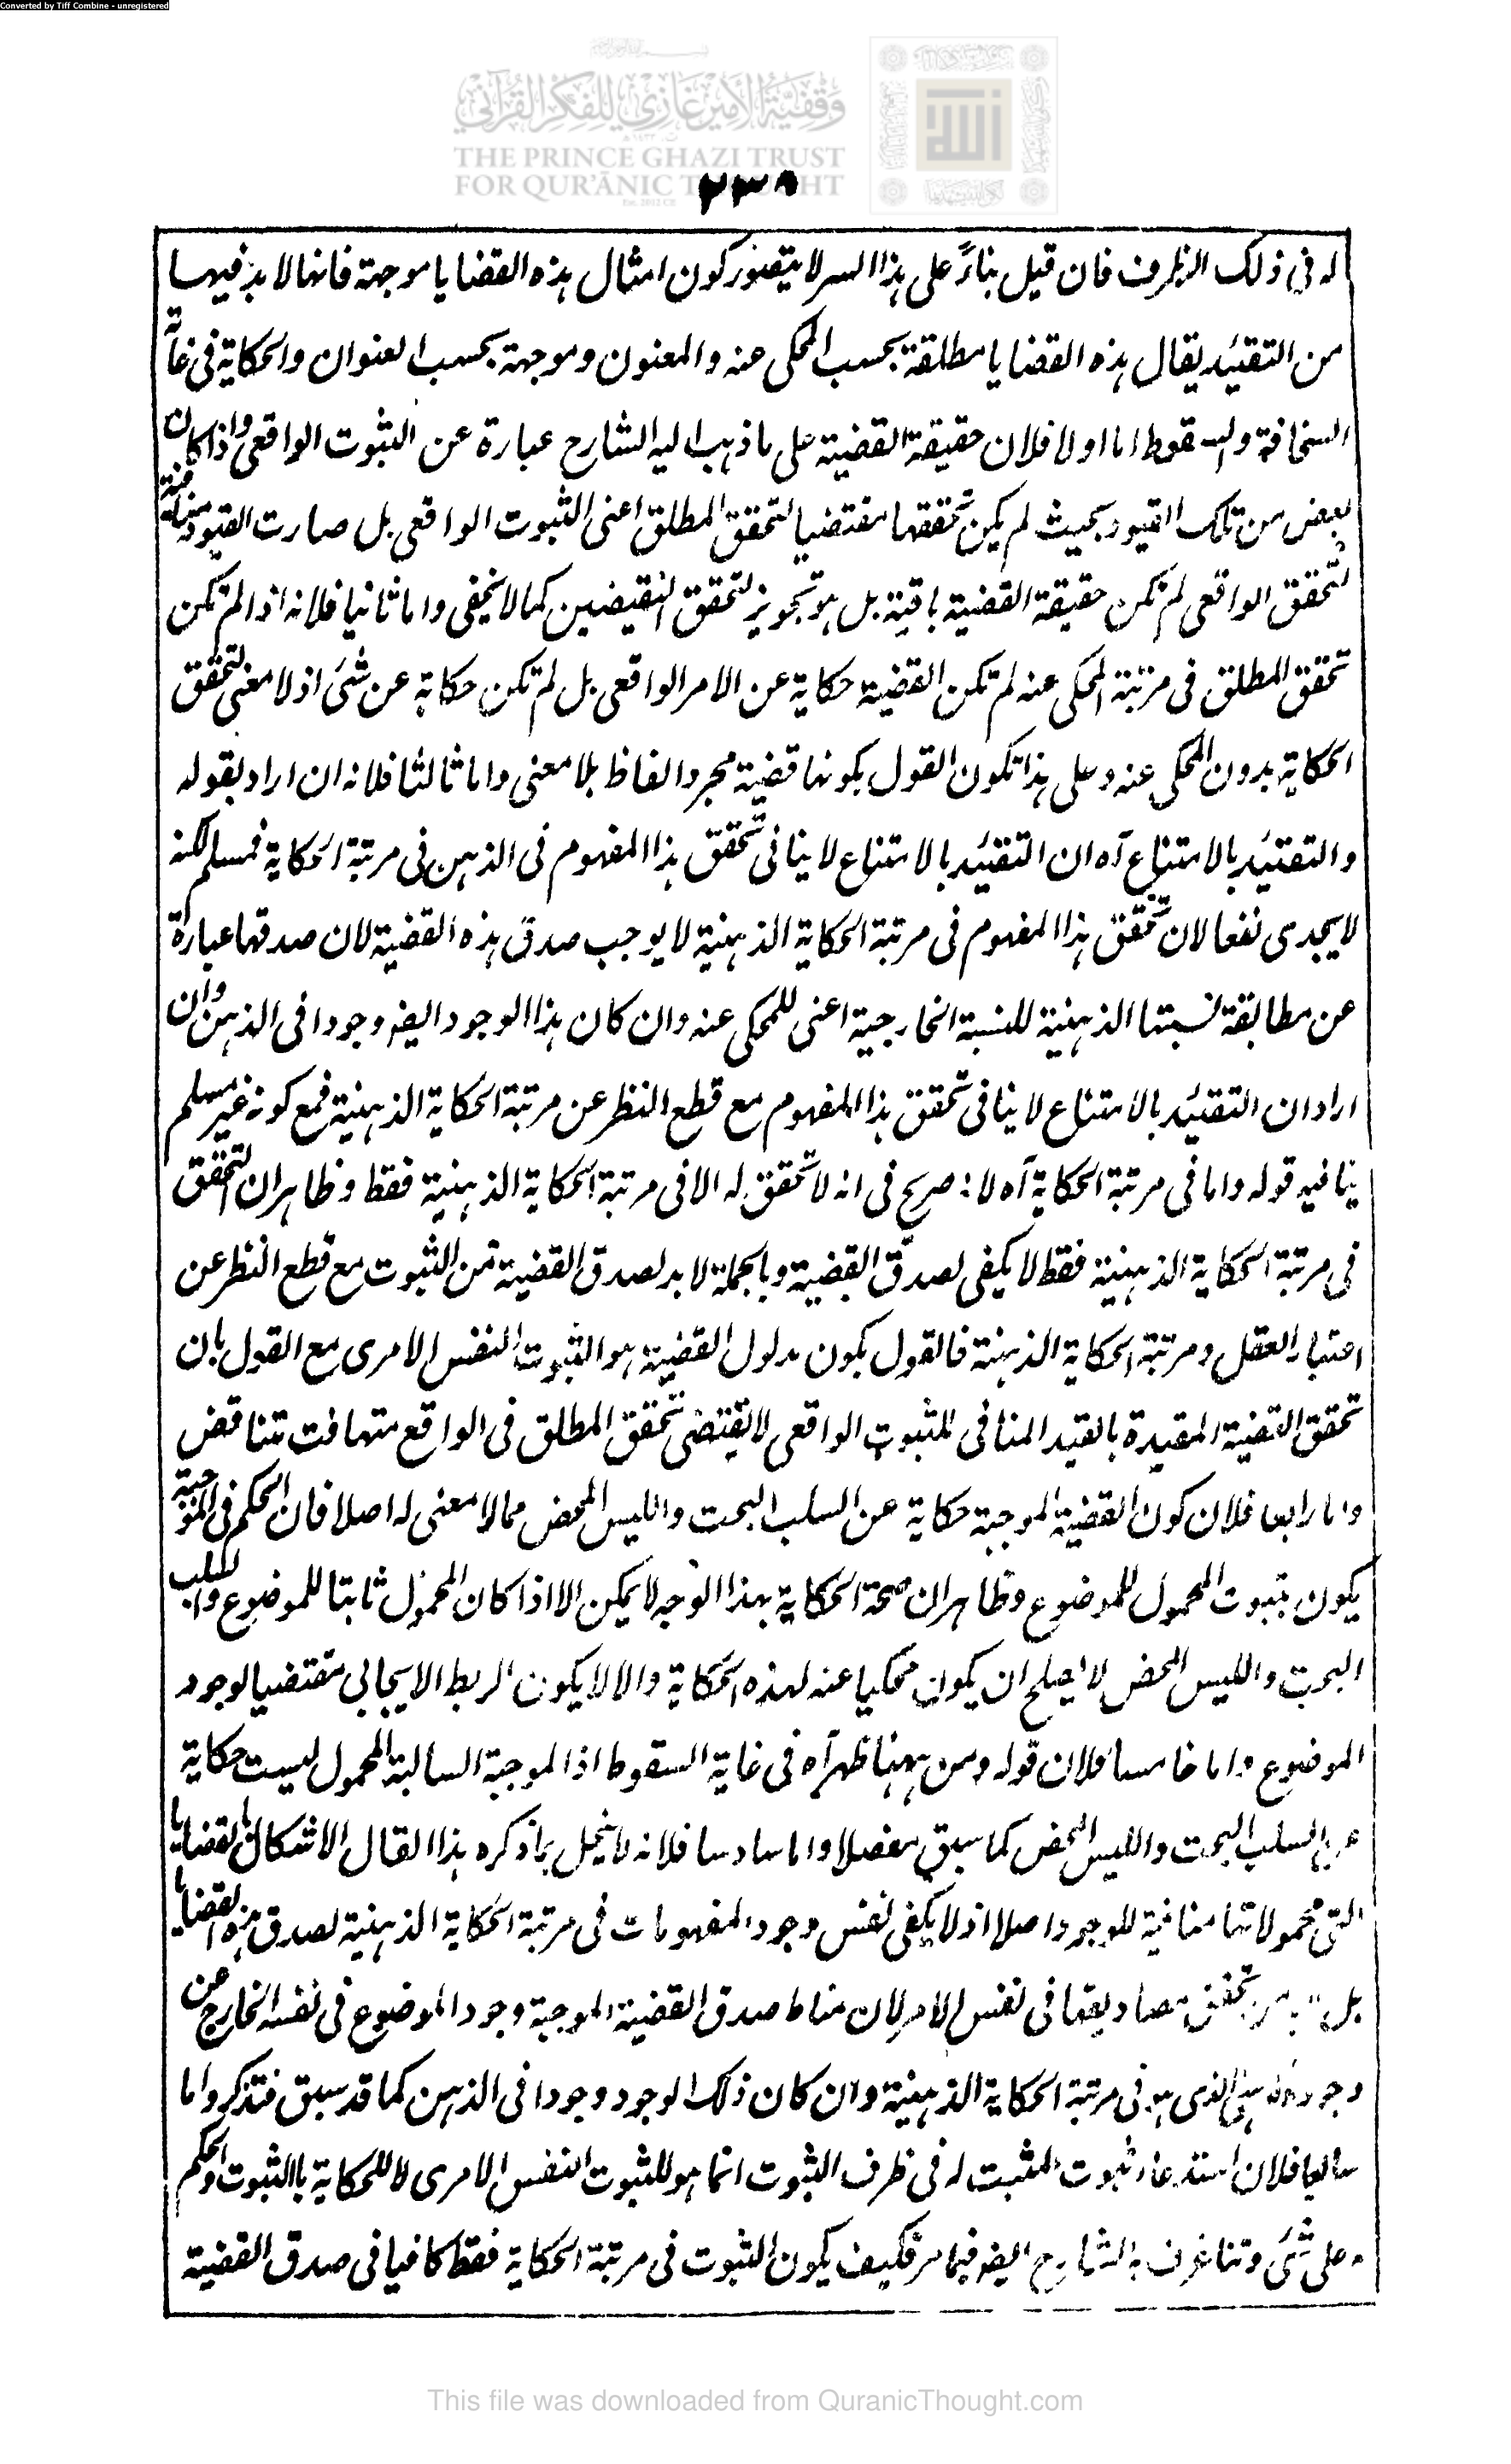 Converted by Tiff Combine - unregistered
وقفية الأمير غازي للفكر القرآني
THE PRINCE GHAZI TRUST
FOR QUR'ĀNIC THOUGHT
٢٣٩
له فى ذلك الظرف فان قيل بناءً على هذا السر لا يتصور كون امثال هذه القضايا موجهة فانها لا بد فيها
من التقئيد يقال هذه القضايا مطلقة بحسب المحكى عنه والمعنون وموجهة بحسب العنوان والحكاية فى غاية
السخافة والسقوط اما اولا فلان حقيقة القضية على ما ذهب اليه الشارح عبارة عن الثبوت الواقعى واذا كان
بعض من تلك القيود بحيث لم يكن تحققها مقتضيا لتحقق المطلق اعنى الثبوت الواقعى بل صارت القيود منافية
لتحقق الواقعى لم تكن حقيقة القضية باقية بل هو تجويز لتحقق النقيضين كما لا يخفى واما ثانيا فلانه اذا لم تكن
تحقق المطلق فى مرتبة المحكى عنه لم تكن القضية حكاية عن الامر الواقعى بل لم تكن حكاية عن شئ اذ لا معنى لتحقق
الحكاية بدون المحكى عنه وعلى هذا تكون القول بكونها قضية مجرد الفاظ بلا معنى واما ثالثا فلانه ان اراد بقوله
والتقئيد بالامتناع آه ان التقئيد بالامتناع لا ينافى تحقق هذا المفهوم فى الذهن فى مرتبة الحكاية فمسلم لكنه
لا يجدى نفعا لان تحقق هذا المفهوم فى مرتبة الحكاية الذهنية لا يوجب صدق هذه القضية لان صدقها عبارة
عن مطابقة نسبتها الذهنية للنسبة الخارجية اعنى للمحكى عنه وان كان هذا الوجود ايضا وجودا فى الذهن وان
اراد ان التقئيد بالامتناع لا ينافى تحقق هذا المفهوم مع قطع النظر عن مرتبة الحكاية الذهنية فمع كونه غير مسلم
ينافيه قوله واما فى مرتبة الحكاية آه لانه صريح فى انه لا تحقق له الا فى مرتبة الحكاية الذهنية فقط وظاهر ان التحقق
فى مرتبة الحكاية الذهنية فقط لا يكفى لصدق القضية وبالجملة لا بد لصدق القضية من الثبوت مع قطع النظر عن
اعتبار العقل ومرتبة الحكاية الذهنية فالقول بكون مدلول القضية هو الثبوت النفس الامرى مع القول بان
تحقق القضية المقيدة بالقيد المنافى للثبوت الواقعى لا يقتضى تحقق المطلق فى الواقع متهافت متناقض
واما رابعا فلان كون القضية الموجبة حكاية عن السلب البحت والليس المحض مما لا معنى له اصلا فان الحكم فى الموجبة
يكون بثبوت المحمول للموضوع وظاهر ان صحة الحكاية بهذا الوجه لا يمكن الا اذا كان المحمول ثابتا للموضوع والسلب
البحت والليس المحض لا يصلح ان يكون محكيا عنه لهذه الحكاية والا لا يكون الربط الايجابى مقتضيا لوجود
الموضوع واما خامسا فلان قوله ومن ههنا ظهر آه فى غاية السقوط اذ الموجبة السالبة المحمول ليست حكاية
عن السلب البحت والليس المحض كما سبق مفصلا واما سادسا فلانه لا ينحل بما ذكره هذا القال الاشكال بالقضايا
التى محمولاتها منافية للوجود اصلا اذ لا يكفى نفس وجود المفهومات فى مرتبة الحكاية الذهنية لصدق هذه القضايا
بل لا بد من تحقق مصاديقها فى نفس الامر لان مناط صدق القضية الموجبة وجود الموضوع فى نفسه الخارج عن
وجوده الذهنى الذى هو فى مرتبة الحكاية الذهنية وان كان ذلك الوجود وجودا فى الذهن كما قد سبق فتذكر واما
سابعا فلان استدعاء ثبوت المثبت له فى ظرف الثبوت انما هو للثبوت النفس الامرى لا للحكاية بالثبوت والحكم
على شئ وقد اعترف به الشارح ايضا فيما مر فكيف يكون الثبوت فى مرتبة الحكاية فقط كافيا فى صدق القضية
This file was downloaded from QuranicThought.com